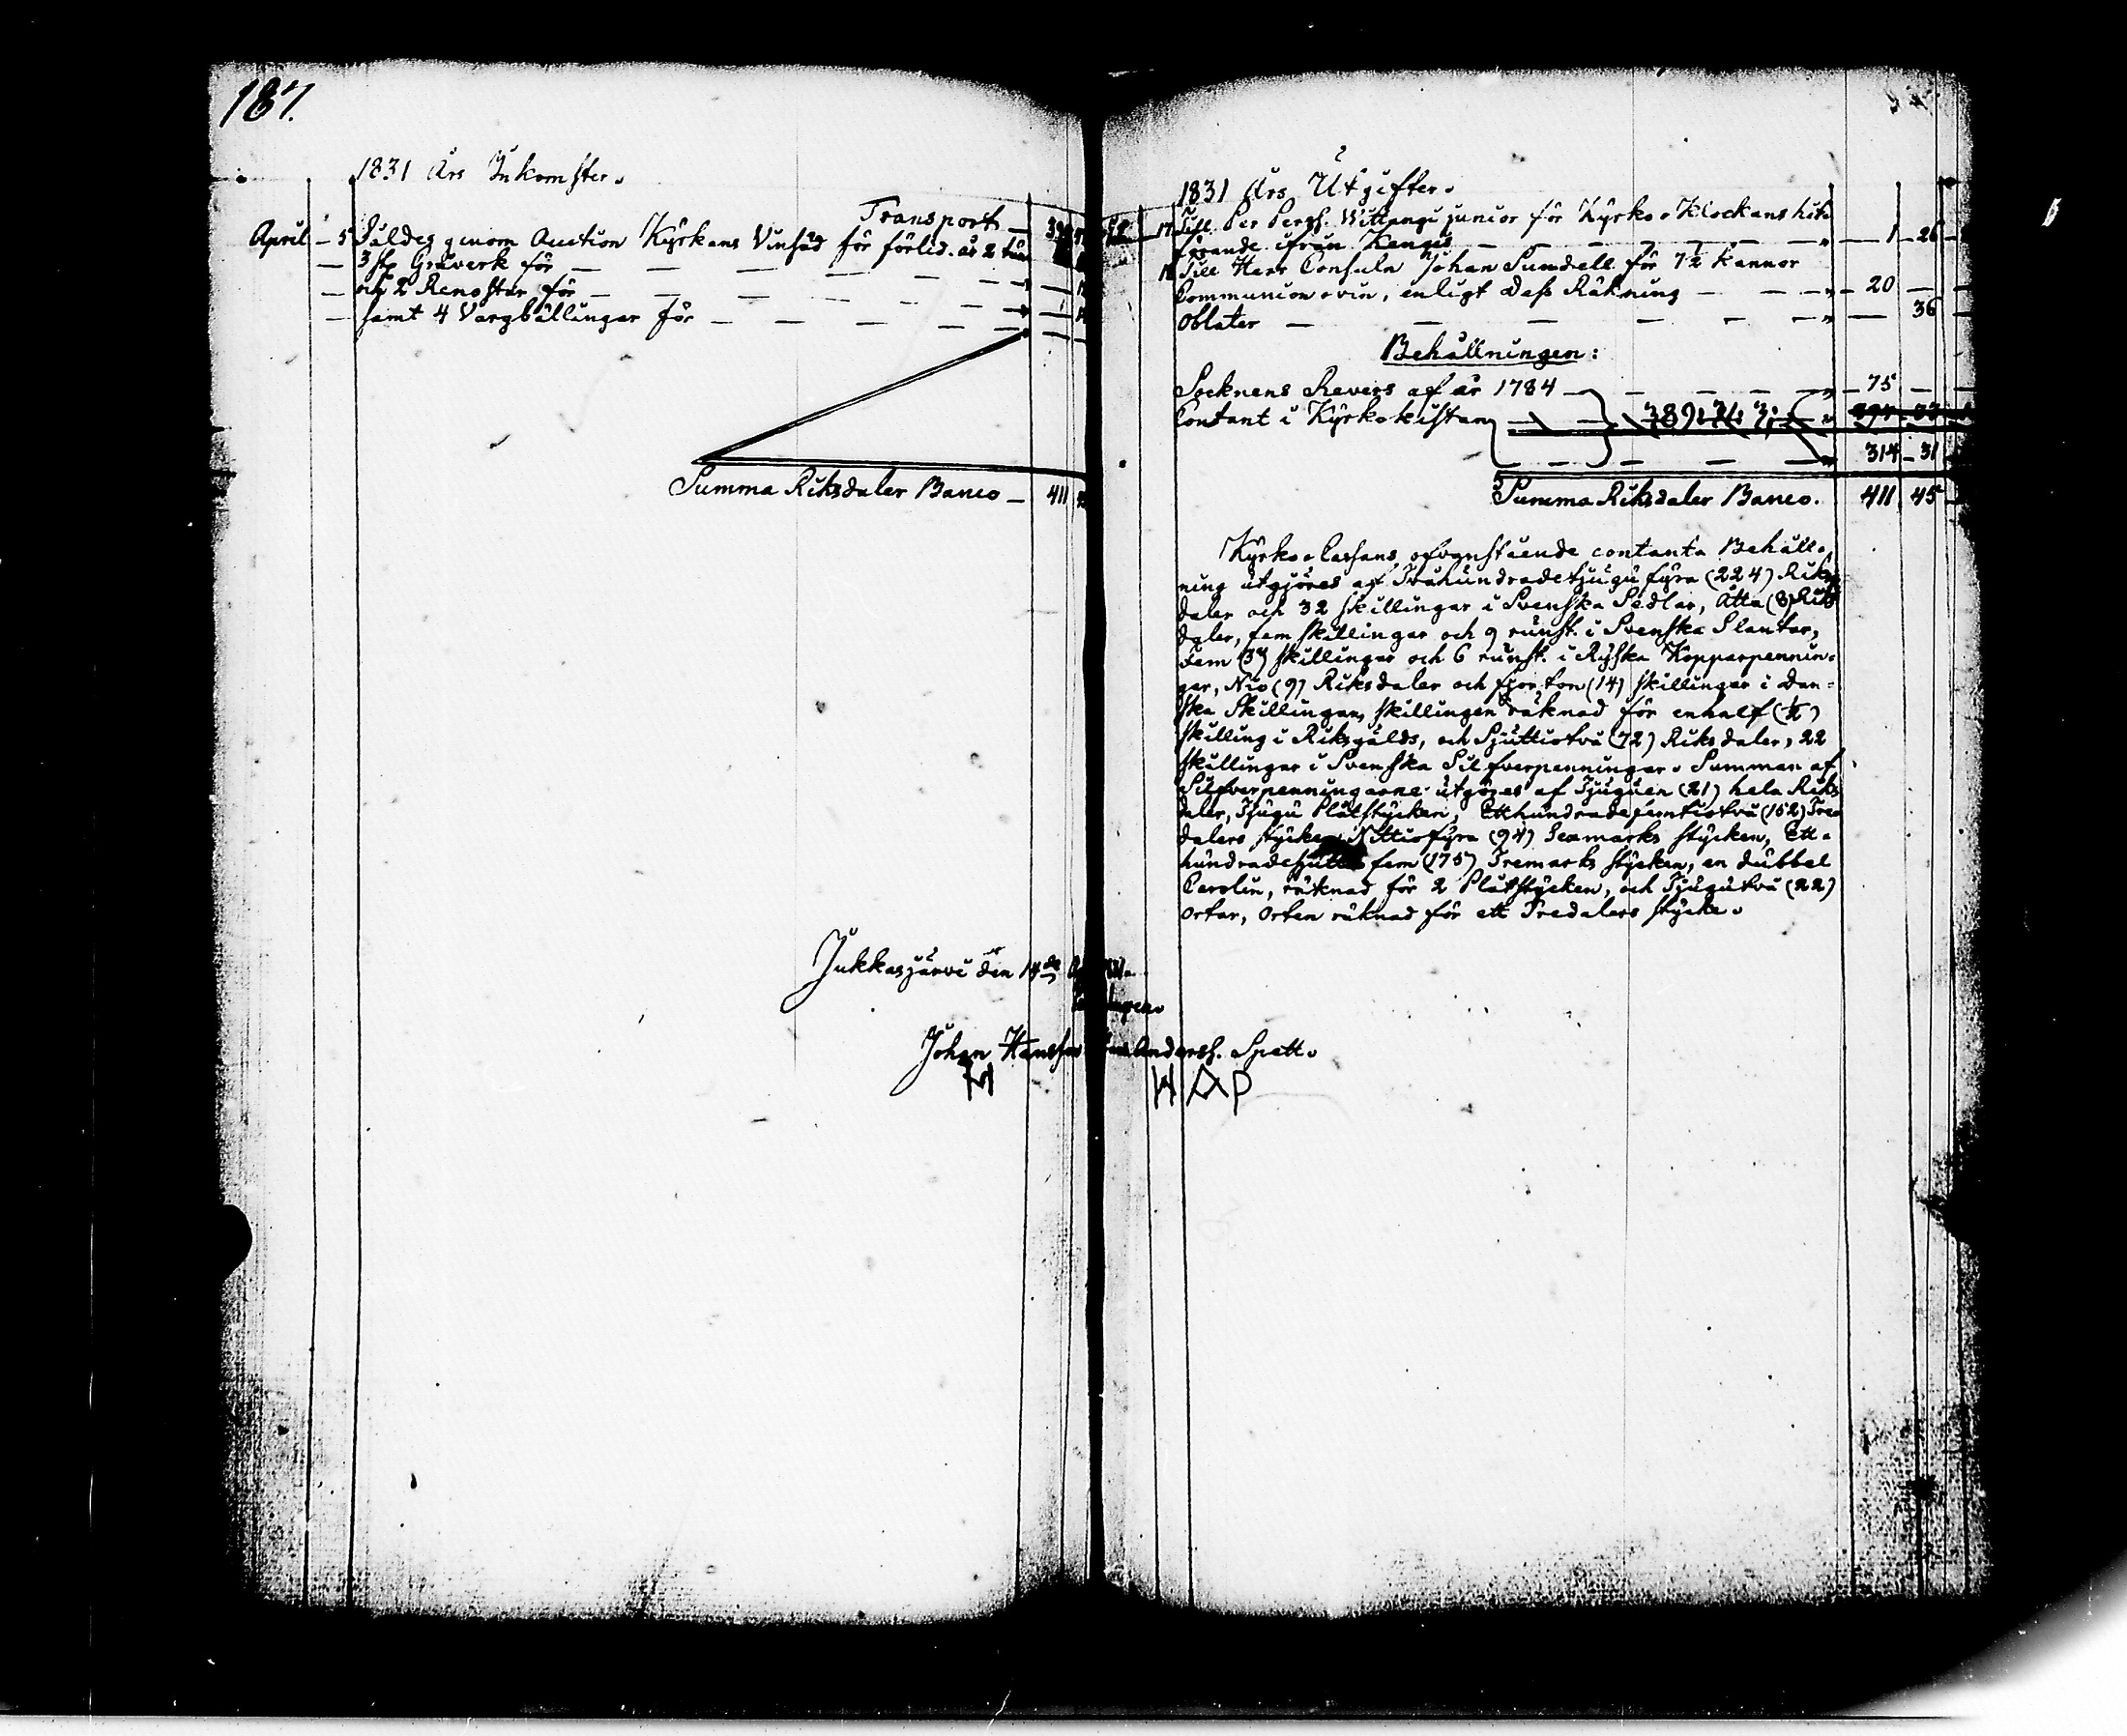 187.
1831 Års Inkomster.
Transport —
April — 5 Såldes genom Auction Kyrkans Vinsäd för förlid. år 2
— 3 st. Gråverk för — — — — —
— och 2 Renostar för — — — — —
— samt 4 Vargbällingar för — — — — —
Summa Riksdaler Banco — 411
Jukkasjärvi den 14de
Johan Hansson
1831 Års Utgifter.
17 Till Per Perss. Wittangi junior för Kyrko-Klockans hit-
förande ifrån Kengis — — — — — 1 — 26
Till Herr Consuln Johan Sundell för 7½ kannor
Communion-vin, enligt dess Räkning — — — 20 —
Oblater — — — — — 36
Behållningen:
Socknens Revers af år 1784 — — — — 75 —
Contant i Kyrkokistan
314 — 31
Summa Riksdaler Banco. 411 45
Kyrko-Cassans ofvanstående contanta Behåll-
ning utgjöres af Tvåhundradetjugufyra (224) Riks-
daler och 32 skillingar i Svenska Sedlar, Åtta (8) Riks
daler, fem skillingar och 9 runst. i Svenska Slantar,
Fem (5) skillingar och 6 runst. i Ryska Kopparpennin-
gar, Nio (9) Riksdaler och fjorton (14) skillingar i Dan-
ska Skillingar, skillingen räknad för enhalf (½)
skilling i Riksgälds, och Sjuttiotvå (72) Riksdaler, 22
skillingar i Svenska Silfverpenningar. Summan af
Silfverpenningarne utgöres af Tjuguen (21) hela Riks
daler, Tjugu Plåtstycken, Etthundradefemtiotvå (152) Tre-
dalers stycken, Nittiofyra (94) Sexmarks stycken, Ett-
hundradesjuttiofem (175) Tremarks stycken, en dubbel
Carolin, räknad för 2 Plåtstycken, och Tjugutvå (22)
Ortar, Orten räknad för ett Tredalers stycke.
Anderss. Spett.